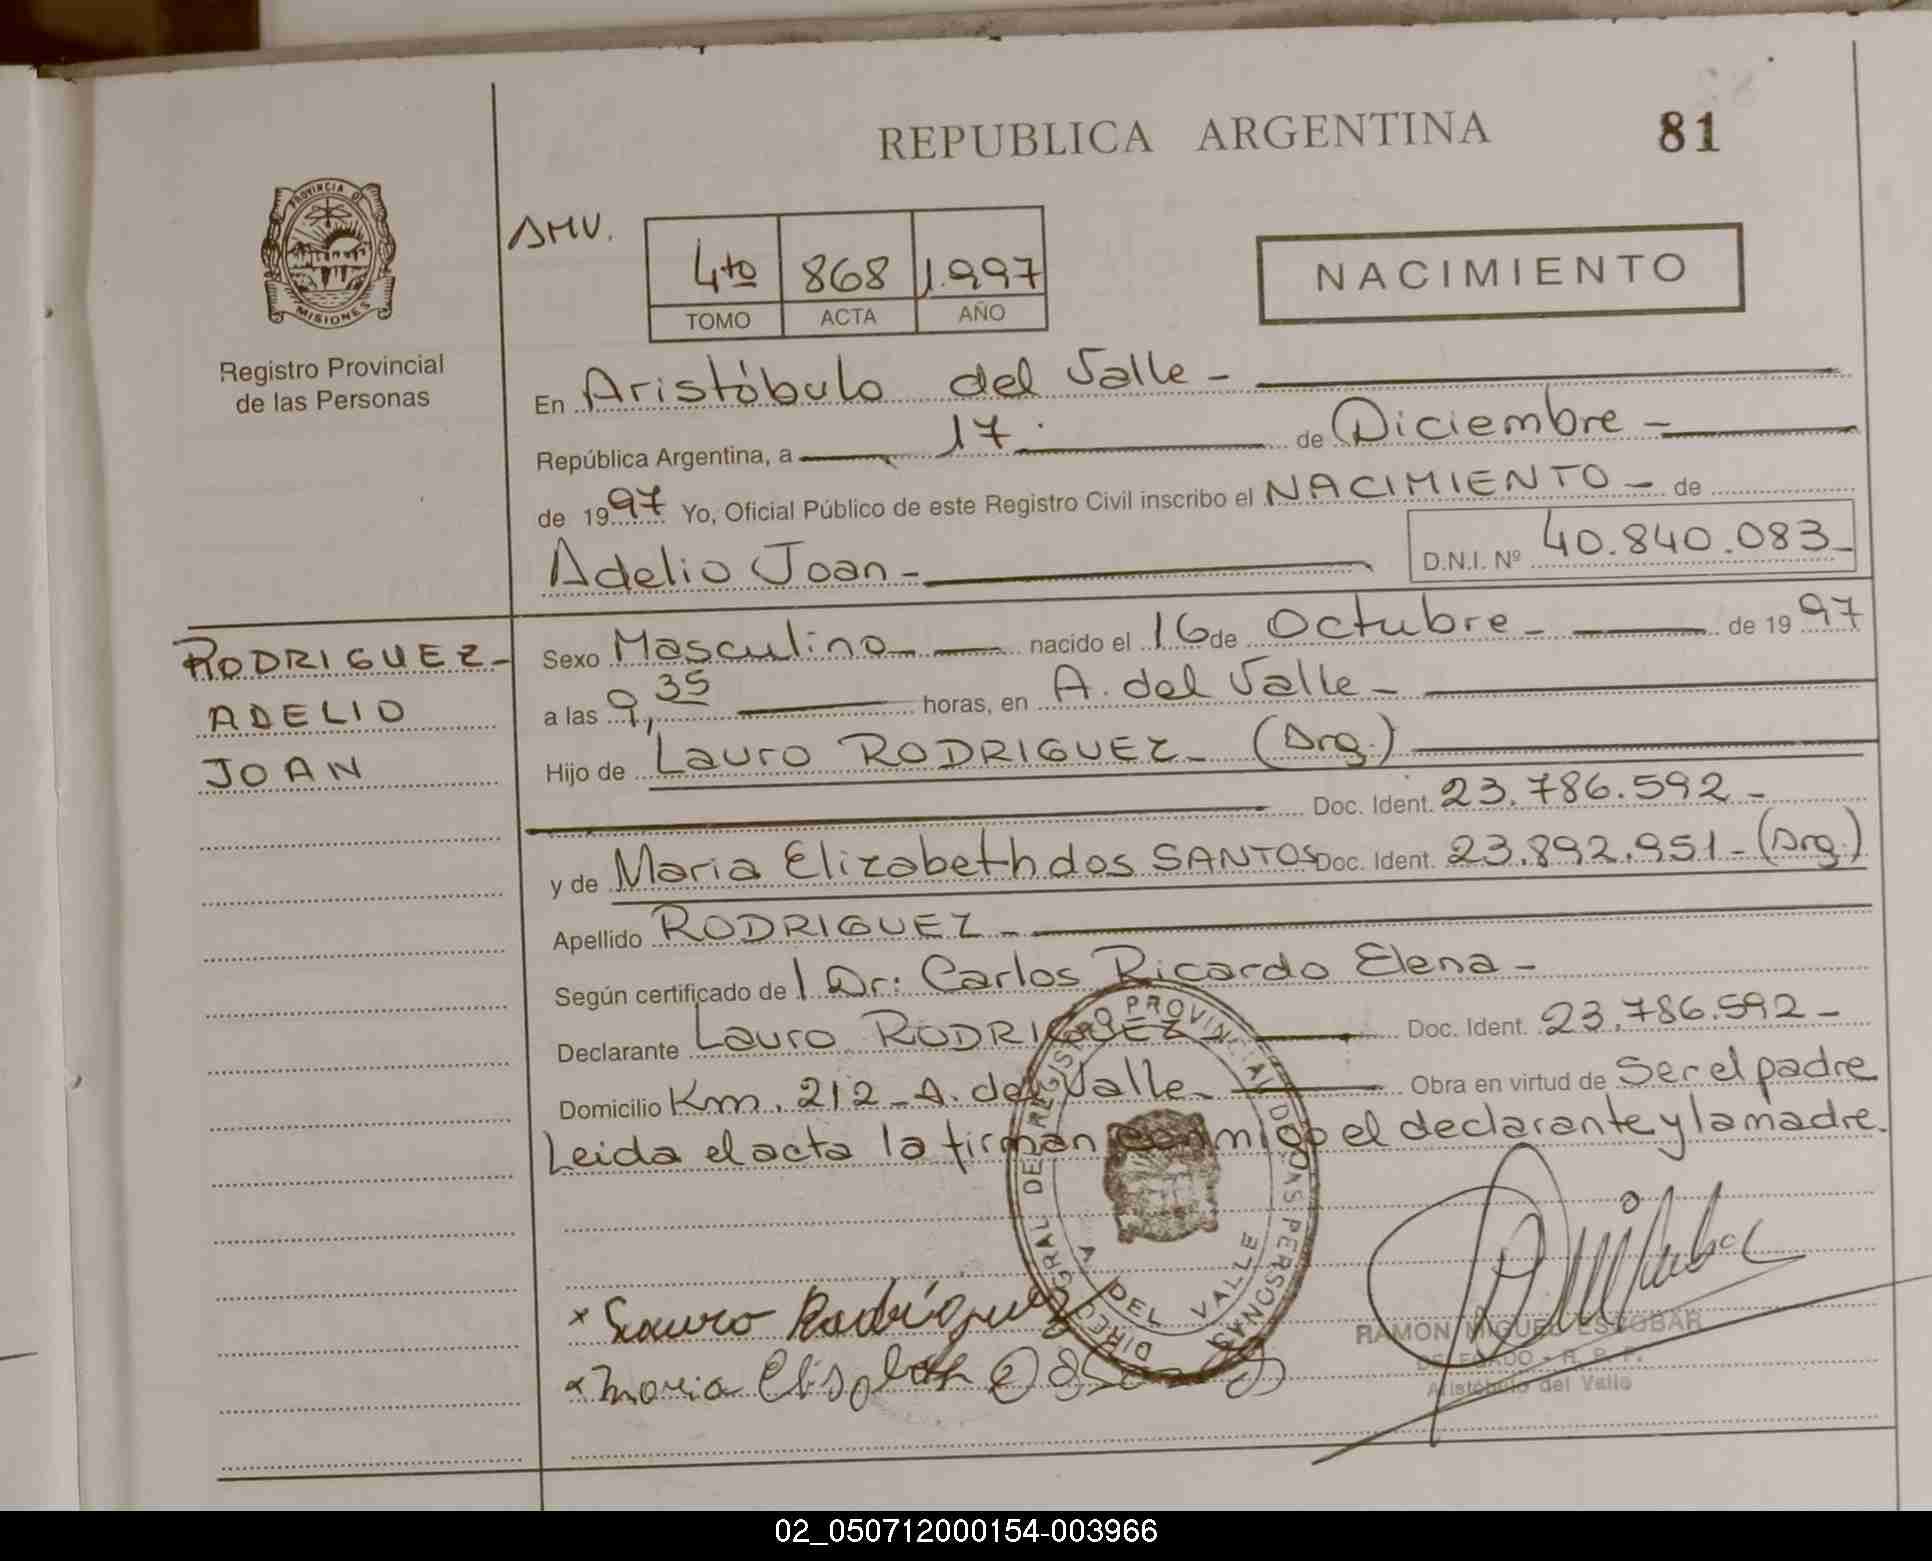 REPUBLICA ARGENTINA
81
PROVINCIA DE
MISIONES
Registro Provincial
de las Personas
AMV.
4to 868 1.997
TOMO ACTA AÑO
NACIMIENTO
En Aristóbulo del Valle -
República Argentina, a 17 de Diciembre -
de 1997 Yo, Oficial Público de este Registro Civil inscribo el NACIMIENTO - de
Adelio Joan - D.N.I. Nº 40.840.083-
RODRIGUEZ-
ADELIO
JOAN
Sexo Masculino- nacido el 16 de Octubre - de 1997
a las 9,35 horas, en A. del Valle -
Hijo de Lauro RODRIGUEZ- (Arg.)
Doc. Ident. 23.786.592 -
y de Maria Elizabeth dos SANTOS Doc. Ident. 23.892.951- (Arg.)
Apellido RODRIGUEZ -
Según certificado de l Dr: Carlos Ricardo Elena -
Declarante Lauro RODRIGUEZ Doc. Ident. 23.786.592 -
Domicilio Km. 212 - A. del Valle - Obra en virtud de Ser el padre
Leida el acta la firman conmigo el declarante y la madre.
DIREC. GRAL DE REGISTRO PROVINCIAL DE LAS PERSONAS
A. DEL VALLE
x Lauro Rodriguez
x Maria Elisabeth
RAMON MIGUEL ESCOBAR
DELEGADO - R. P. P.
Aristóbulo del Valle
02_050712000154-003966